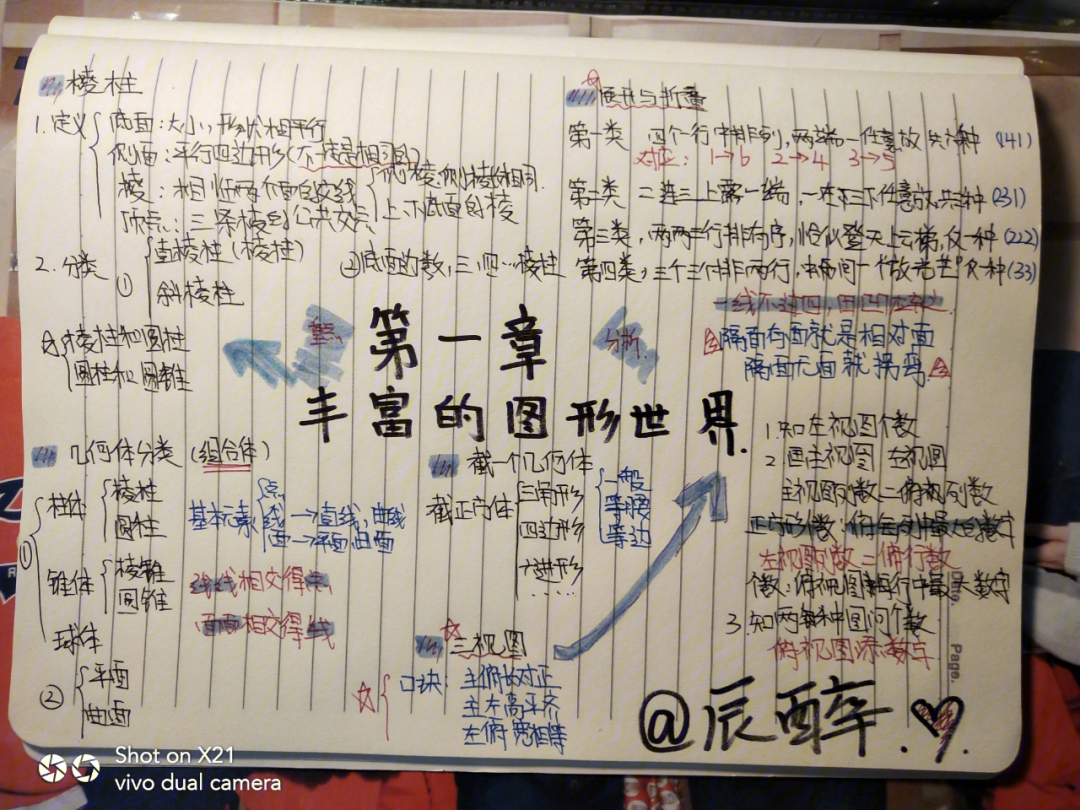 棱柱
1.定义 底面:大小,形状相平行
侧面:平行四边形(不一定是相同的)
棱:相邻两个面的交线 侧棱:侧棱长相同.
上下底面的棱
顶点:三条棱的公共交点
2.分类 ① 直棱柱(棱柱)
斜棱柱
②底面的数,三,四…棱柱
棱柱和圆柱
圆柱和圆锥
重点
第一章
丰富的图形世界.
分析
展开与折叠
第一类 四个一行中排列,两端一任意放共六种 (141)
对应: 1→6 2→4 3→5
第二类 二连三上露一端,一在三下任意放,共三种 (231)
第三类,两两三行排有序,恰似登天上云梯,仅一种 (222)
第四类,三个三个排两行,中间一个放光芒 只一种 (33)
一线不过四,田凹应弃之
隔面有面就是相对面
隔面无面就拐弯.
几何体分类 (组合体)
① 柱体 棱柱
圆柱
锥体 棱锥
圆锥
球体
② 平面
曲面
基本元素 点
线→直线,曲线
面→平面,曲面
线线相交得点
面面相交得线
截一个几何体
截正方体 三角形 一般
等腰
等边
四边形
……
三视图
口诀: 主俯长对正
主左高平齐
左俯宽相等
1.知左视图个数
2.画主视图 左视图
主视图列数=俯视列数
正方形个数:俯每列中最大的数字
左视图列数=俯行数
个数:俯视图每行中最大数字
3.知两种图问个数
俯视图添数字
Page.
@辰醉.
Shot on X21
vivo dual camera